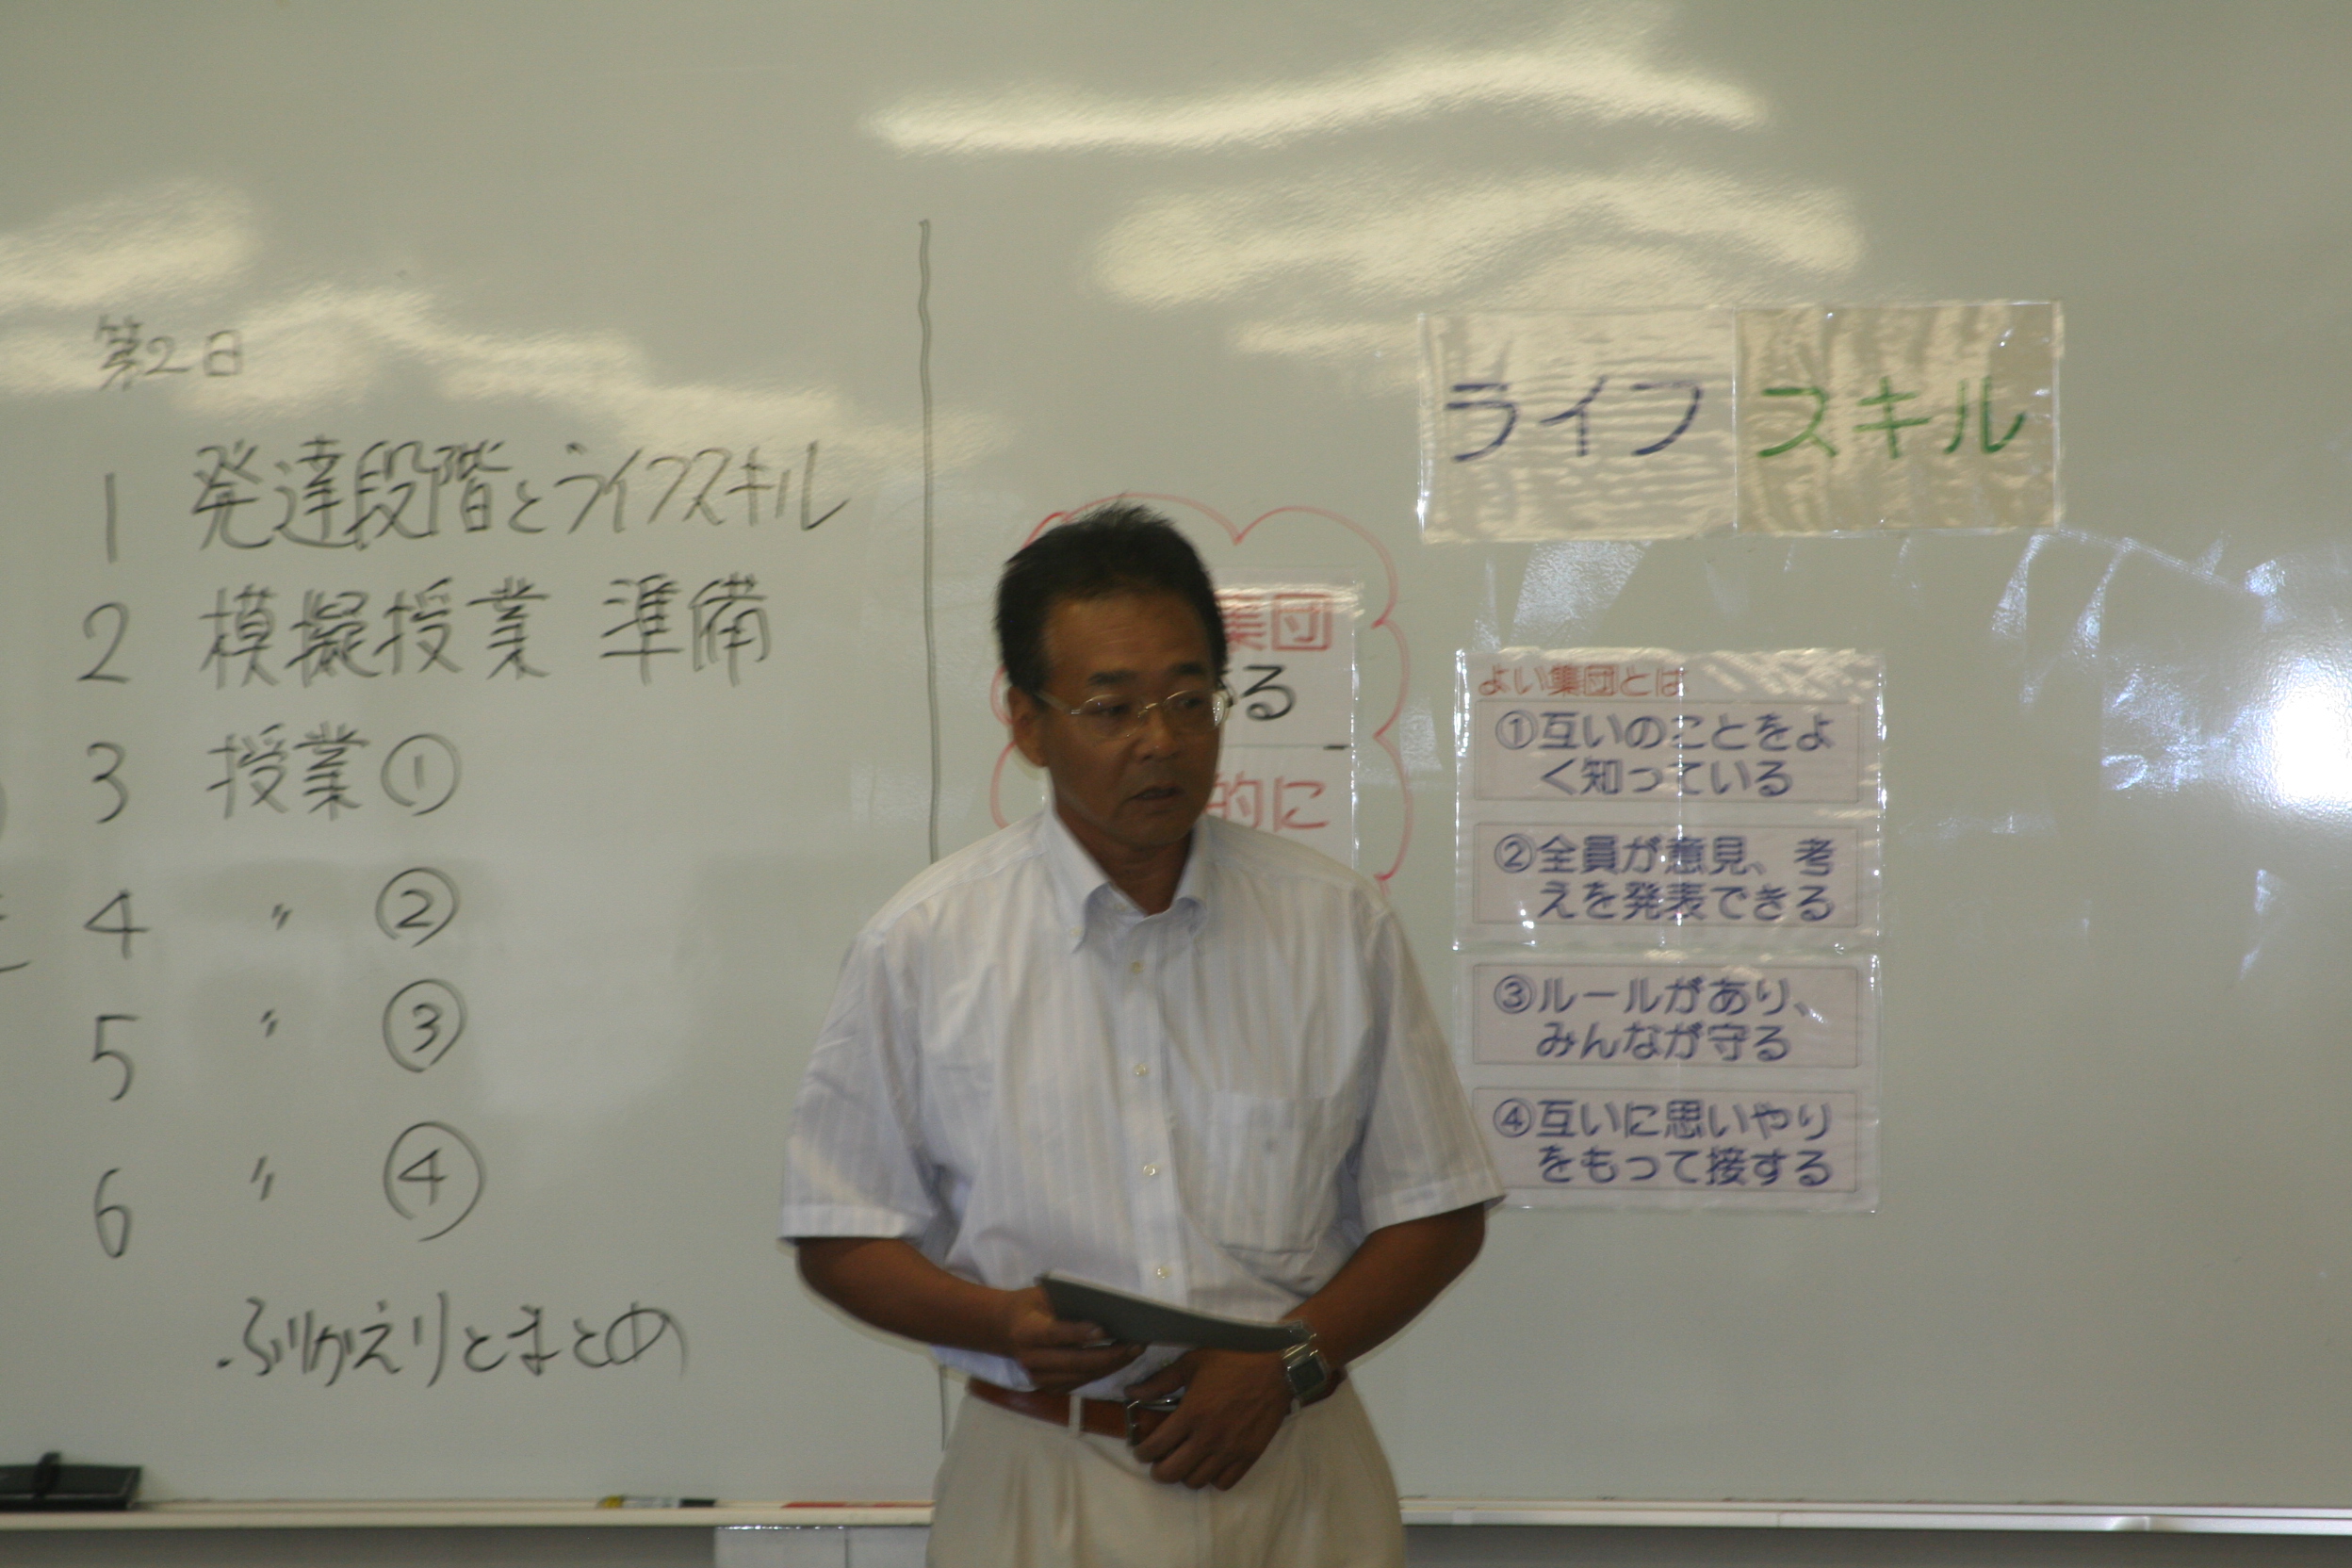 第2日
1 発達段階とライフスキル
2 模擬授業 準備
3 授業①
4 〃 ②
5 〃 ③
6 〃 ④
・ふりかえりとまとめ
集団
る
的に
ライフスキル
よい集団とは
①互いのことをよ
く知っている
②全員が意見、考
えを発表できる
③ルールがあり、
みんなが守る
④互いに思いやり
をもって接する